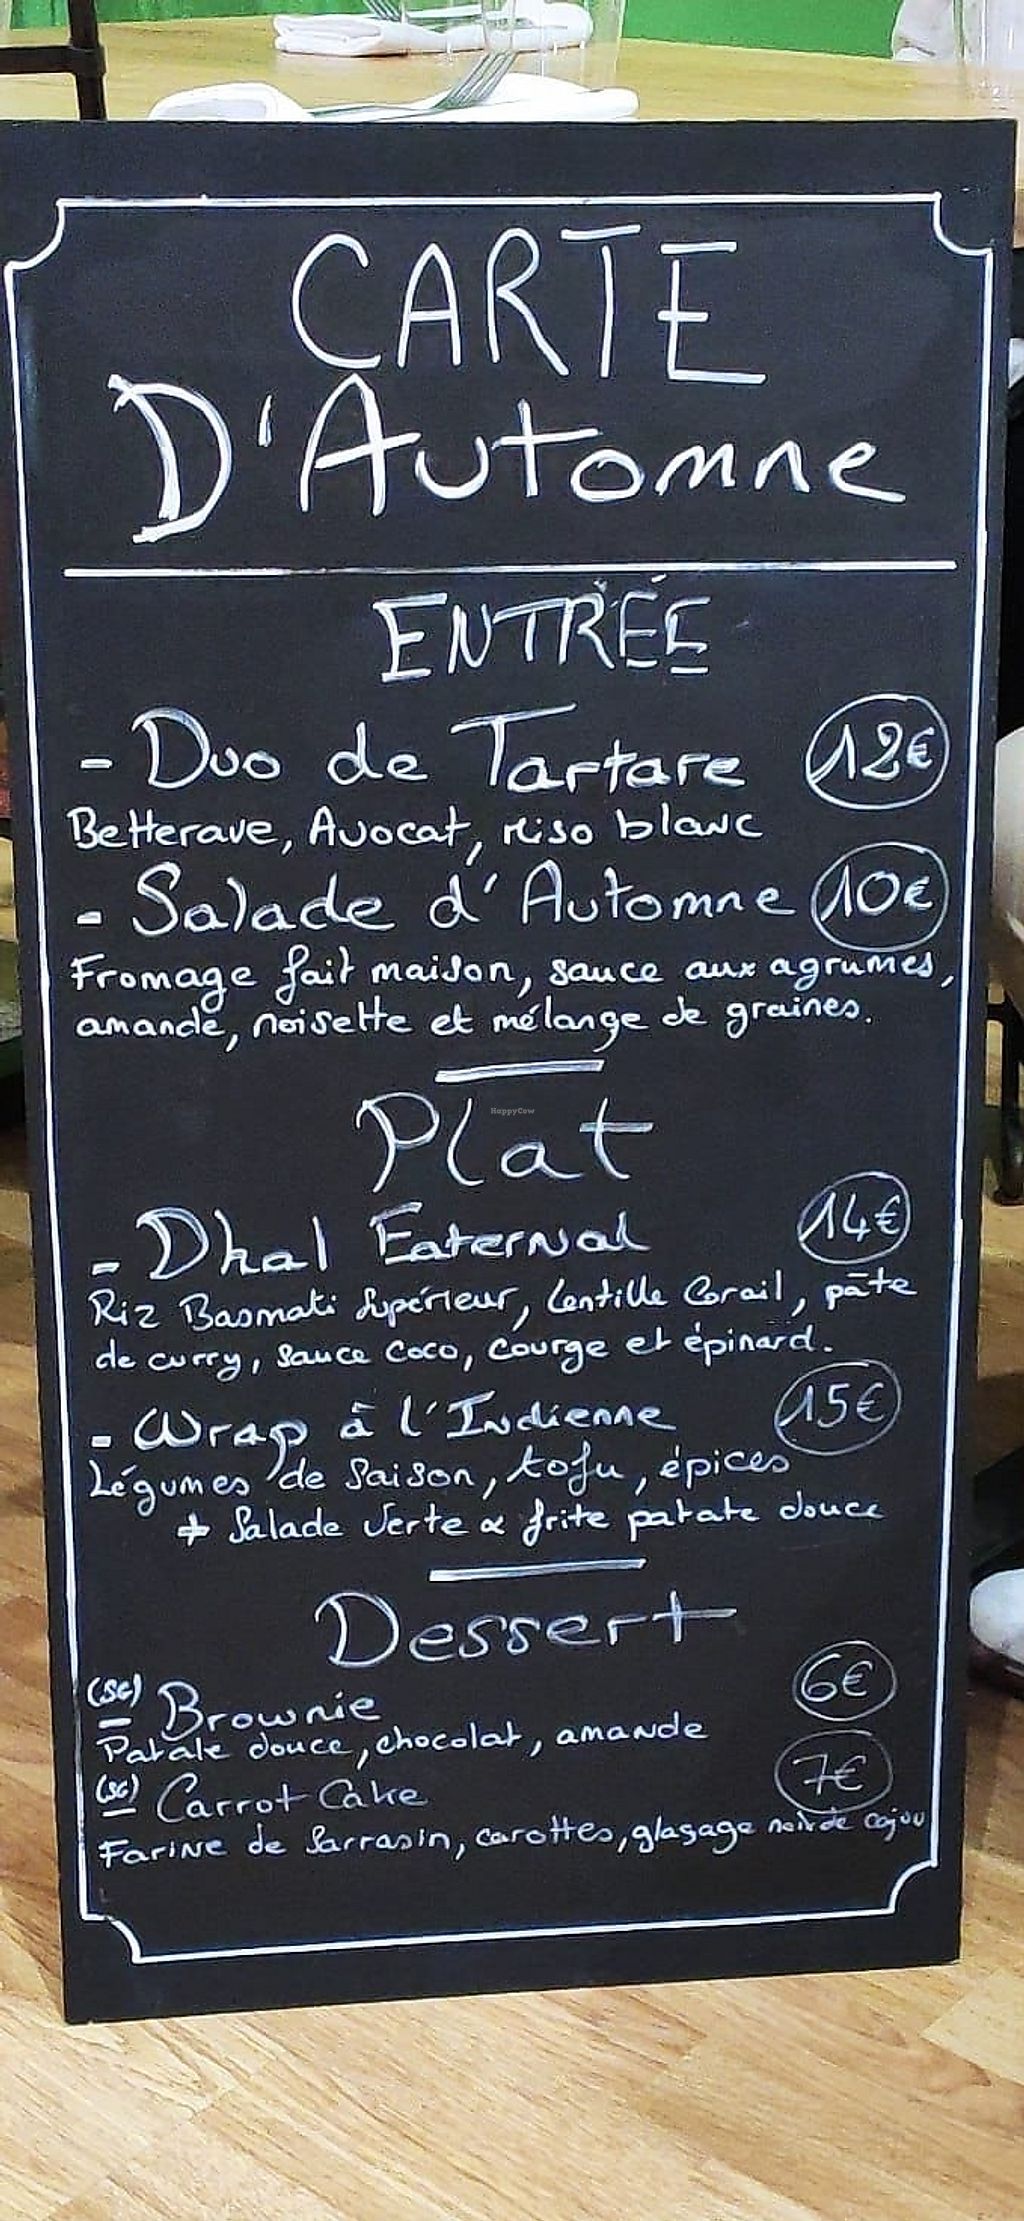 CARTE
D'Automne
ENTRÉE
- Duo de Tartare 12€
Betterave, Avocat, miso blanc
- Salade d'Automne 10€
Fromage fait maison, sauce aux agrumes,
amande, noisette et mélange de graines.
HappyCow
Plat
- Dhal Eaternal 14€
Riz Basmati Supérieur, Lentille Corail, pâte
de curry, sauce coco, courge et épinard.
- Wrap à l'Indienne 15€
Légumes de saison, tofu, épices
+ Salade verte & frite patate douce
Dessert
(SG)
- Brownie 6€
Patate douce, chocolat, amande
(SG)
- Carrot Cake 7€
Farine de Sarrasin, carottes, glaçage noix de cajou